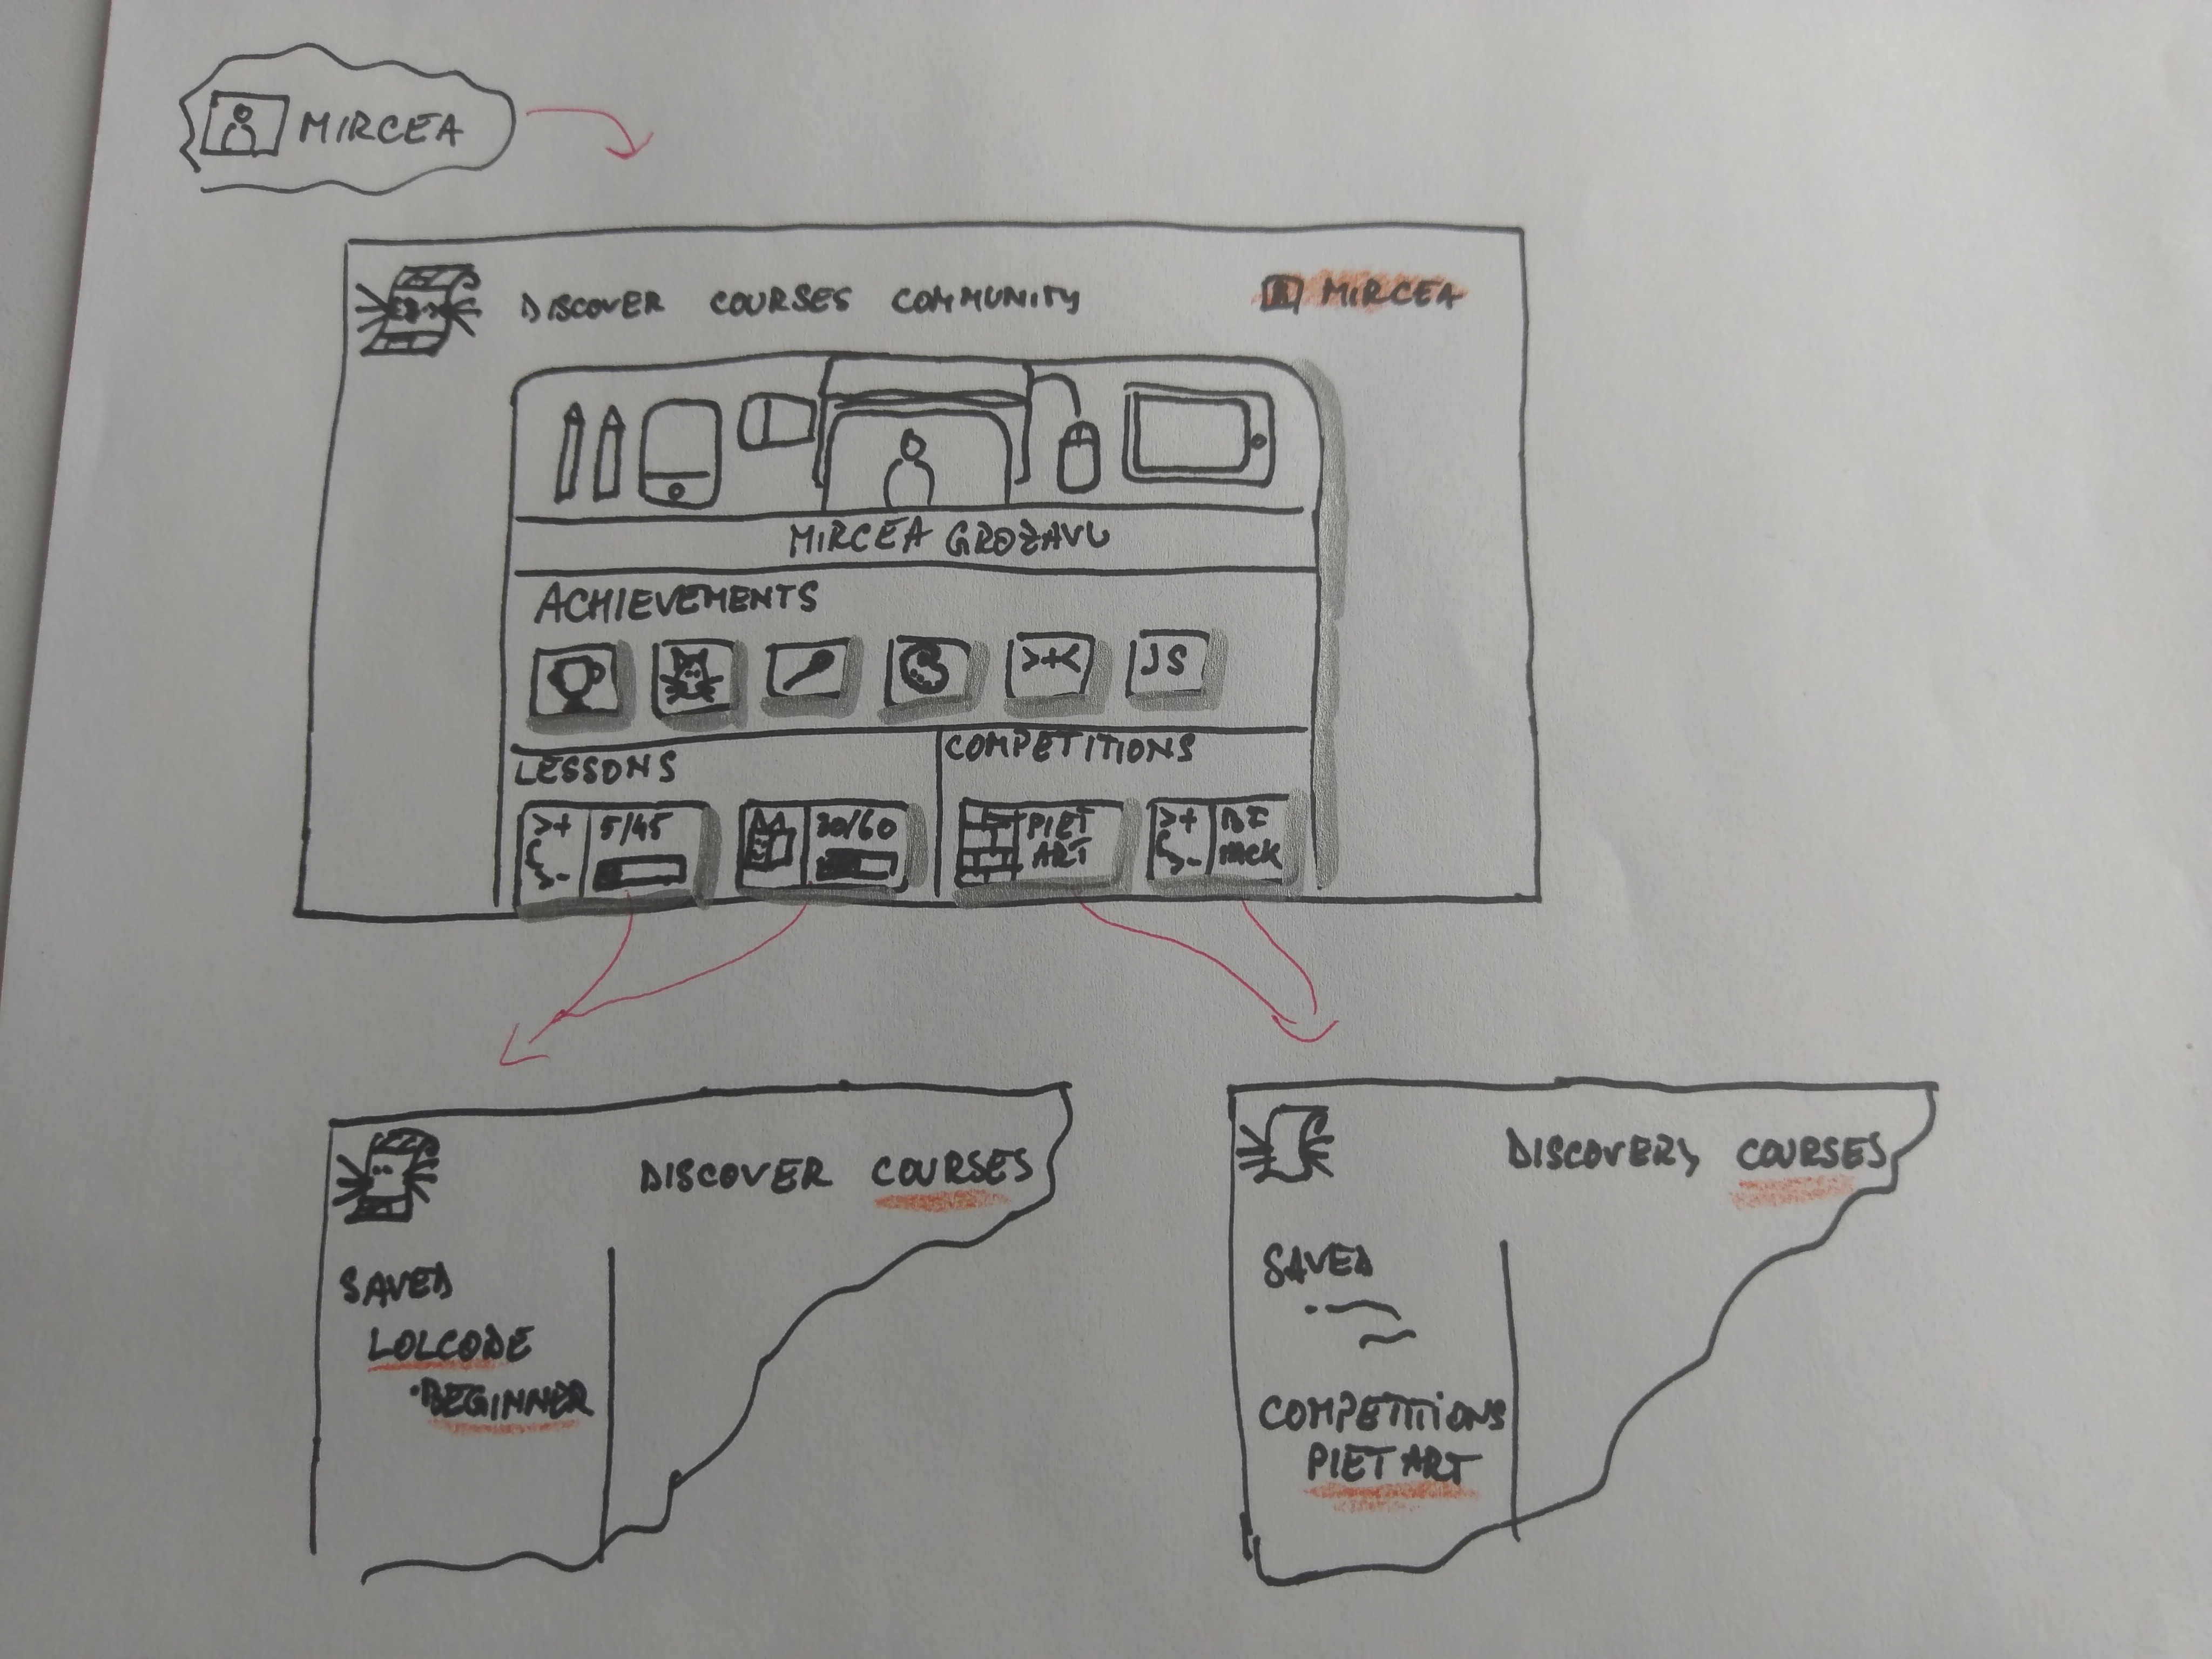 MIRCEA
DISCOVER COURSES COMMUNITY MIRCEA
MIRCEA GROZAVU
ACHIEVEMENTS
>+< JS
LESSONS COMPETITIONS
>+ 5/45 30/60 PIET >+ BF
ART HACK
DISCOVER COURSES
SAVED
LOLCODE
·BEGINNER
DISCOVERY COURSES
SAVED
COMPETITIONS
PIET ART